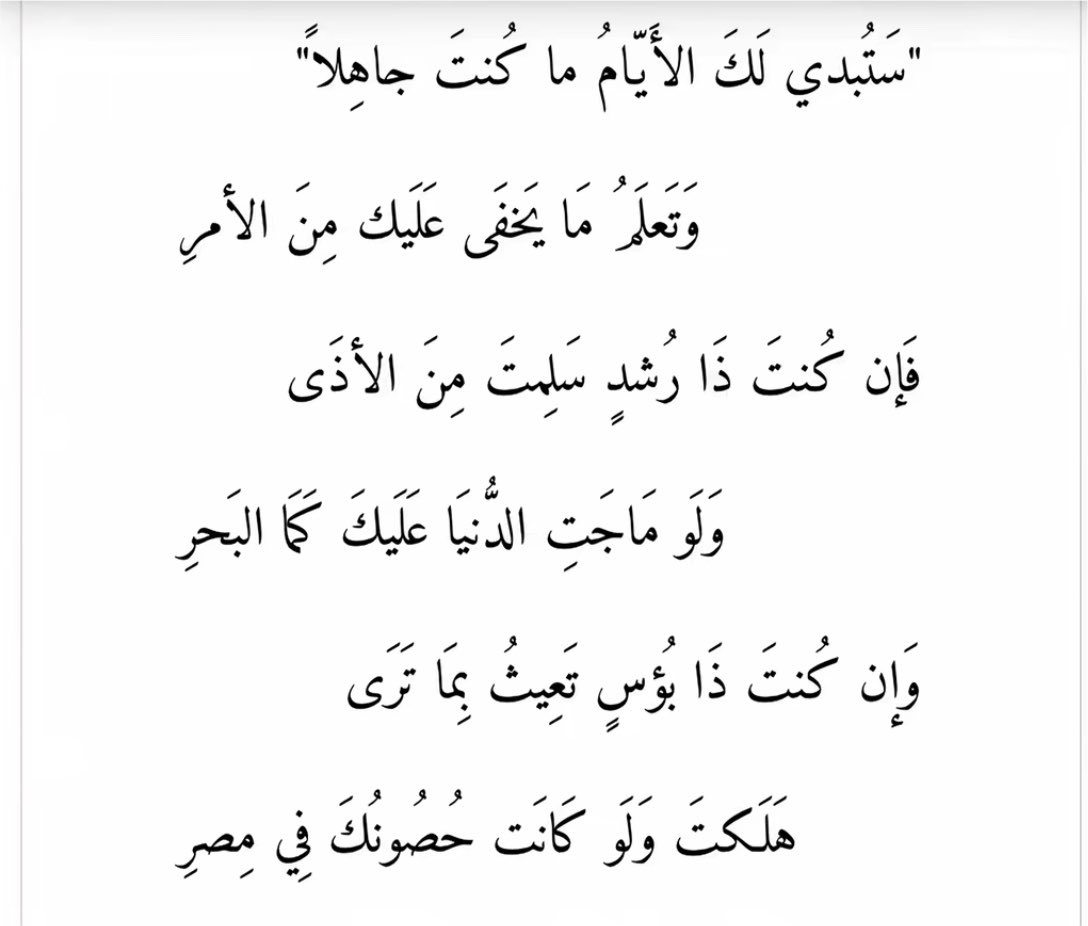 "سَتُبدي لَكَ الأَيّامُ ما كُنتَ جاهِلاً"
وَتَعلَمُ مَا يَخفَى عَلَيك مِنَ الأمرِ
فَإن كُنتَ ذَا رُشدٍ سَلِمتَ مِنَ الأذَى
وَلَو مَاجَتِ الدُّنيَا عَلَيكَ كَمَا البَحرِ
وَإن كُنتَ ذَا بُؤسٍ تَعِيثُ بِمَا تَرَى
هَلَكتَ وَلَو كَانَت حُصُونُكَ فِي مِصرِ